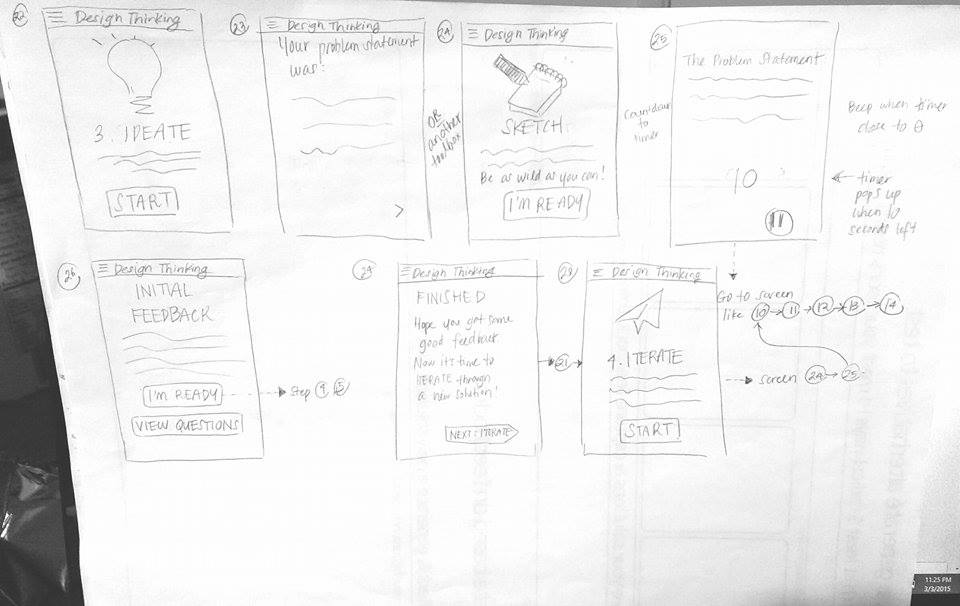 22
Design Thinking
3. IDEATE
START
23
Design Thinking
Your problem statement
was:
>
OR
another
toolbox
24
Design Thinking
SKETCH
Be as wild as you can!
I'M READY
countdown
to
timer
25
The Problem Statement
10
Beep when timer
close to 0
timer
pops up
when 10
seconds left
26
Design Thinking
INITIAL
FEEDBACK
I'M READY
VIEW QUESTIONS
Step 4 5
Design Thinking
FINISHED
Hope you got some
good feedback
Now it's time to
ITERATE through
a new solution!
NEXT: ITERATE
21
28
Design Thinking
4. ITERATE
START
Go to screen
like 10 11 12 13 14
screen 24 25
11:25 PM
3/3/2015